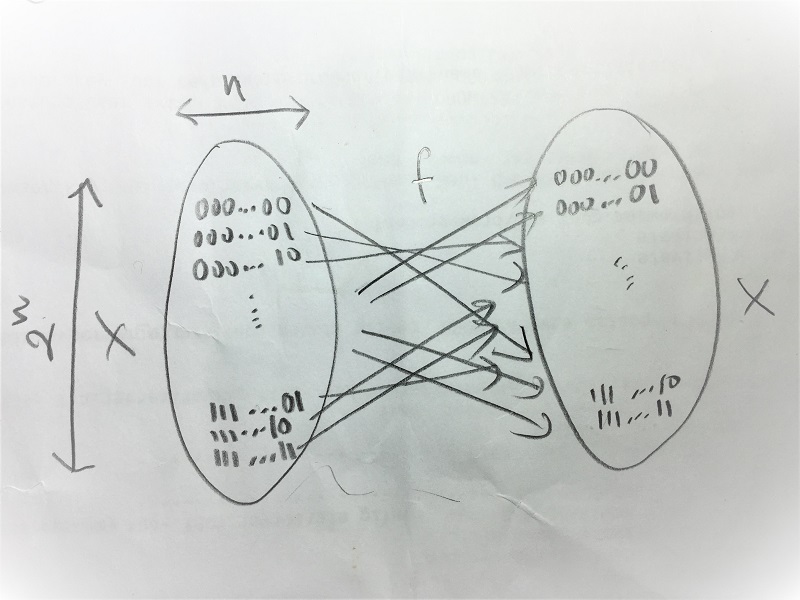 n
f
000...00
000...01
000...10
⋮
111...01
111...10
111...11
2^n
X
000...00
000...01
⋮
111...10
111...11
X